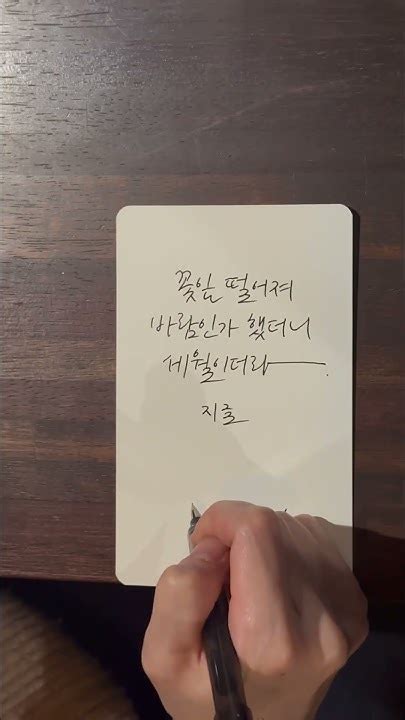 꽃잎 떨어져
바람인가 했더니
세월이더라
지글